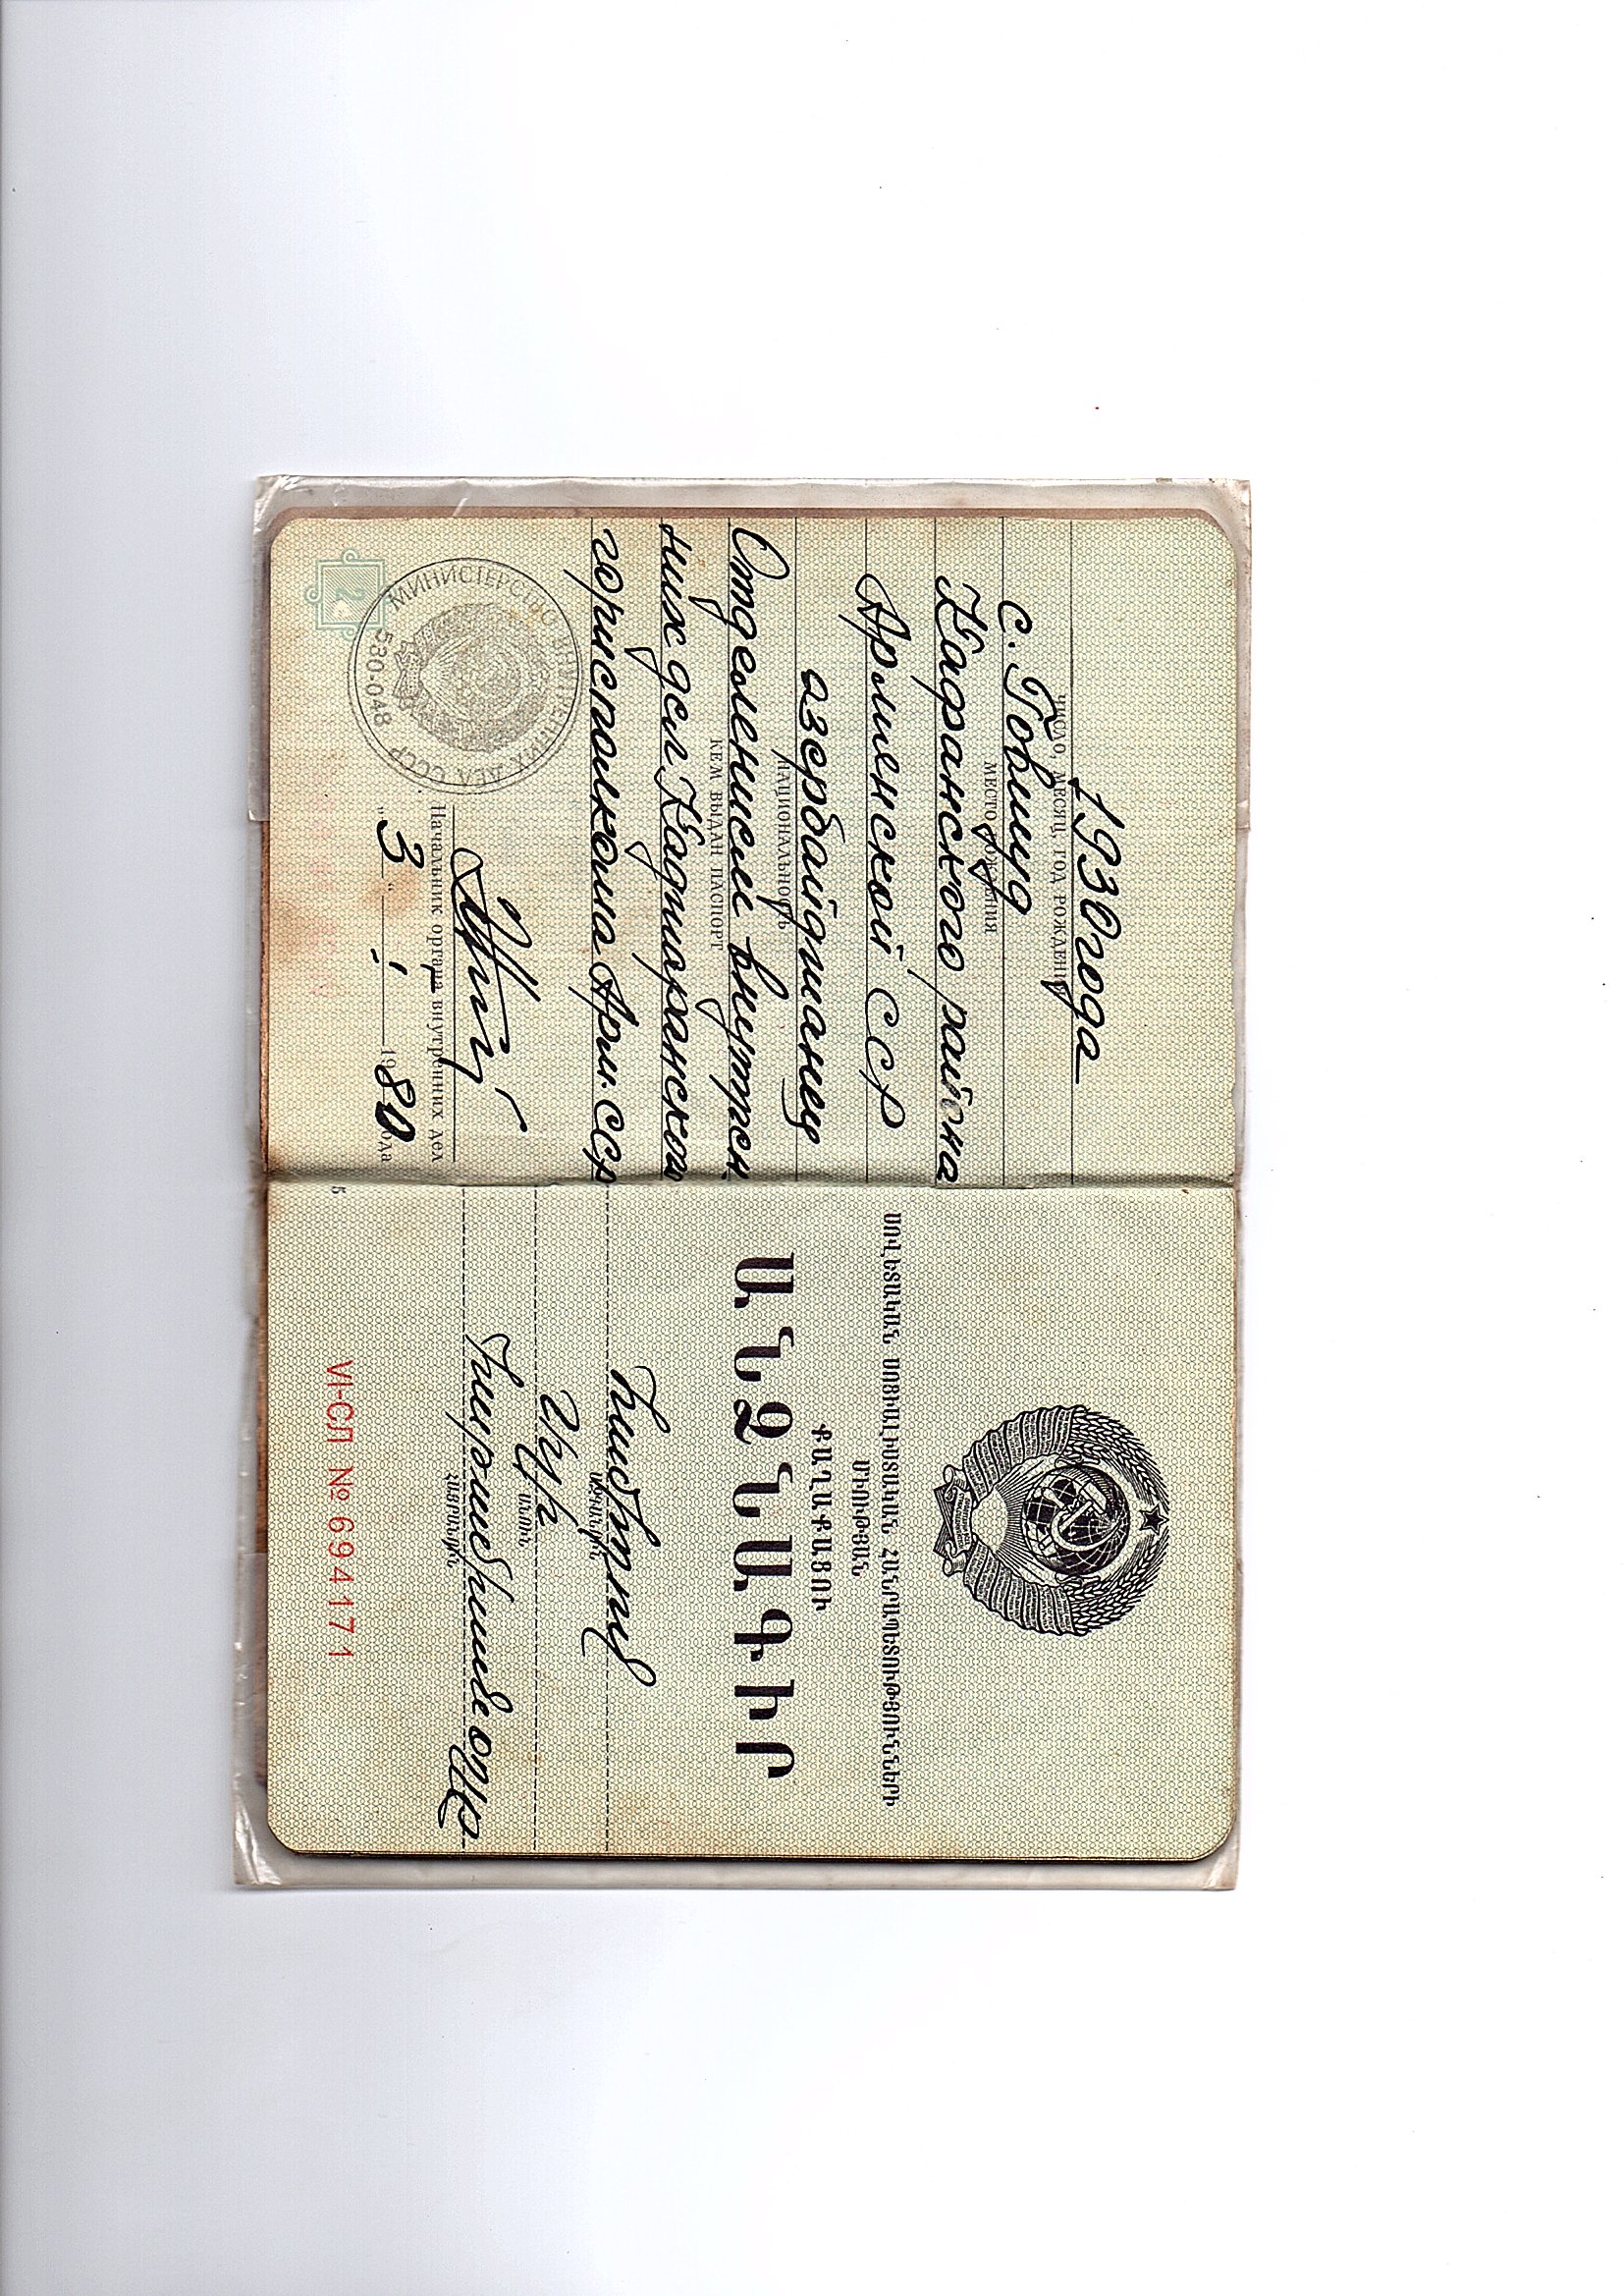 1930 года
ЧИСЛО, МЕСЯЦ, ГОД РОЖДЕНИЯ
с. Говшуд
МЕСТО РОЖДЕНИЯ
Кафанского района
Армянской ССР
азербайджанец
НАЦИОНАЛЬНОСТЬ
Отделением внутрен
КЕМ ВЫДАН ПАСПОРТ
них дел Каджаранского
горисполкома Арм. ССР
МИНИСТЕРСТВО ВНУТРЕННИХ ДЕЛ СССР
530-048
Начальник органа внутренних дел
„ 3 “ I 1980 года
2
ՍՈՎԵՏԱԿԱՆ ՍՈՑԻԱԼԻՍՏԱԿԱՆ ՀԱՆՐԱՊԵՏՈՒԹՅՈՒՆՆԵՐԻ
ՄԻՈՒԹՅԱՆ
ՔԱՂԱՔԱՑՈՒ
ԱՆՁՆԱԳԻՐ
ԱԶԳԱՆՈՒՆ
ԱՆՈՒՆ
ՀԱՅՐԱՆՈՒՆ
VI-СЛ № 694171